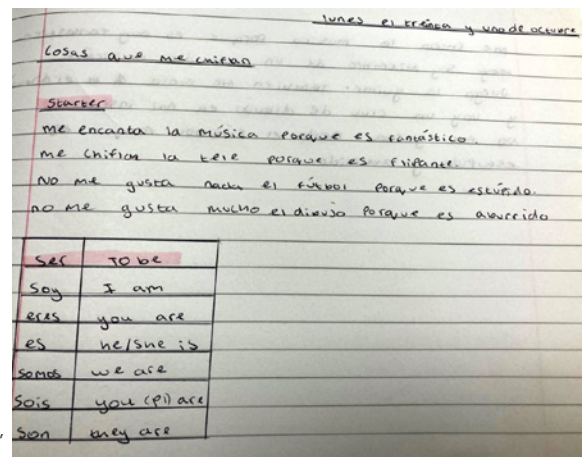 lunes el treinta y uno de octubre
Cosas que me chiflan
Starter
me encanta la música porque es fantástico.
me chiflan la tele porque es flipante.
No me gusta nada el fútbol porque es estúpido.
no me gusta mucho el dibujo porque es aburrido
Ser To be
Soy I am
eres you are
es he/she is
somos we are
Sois you (pl) are
Son they are